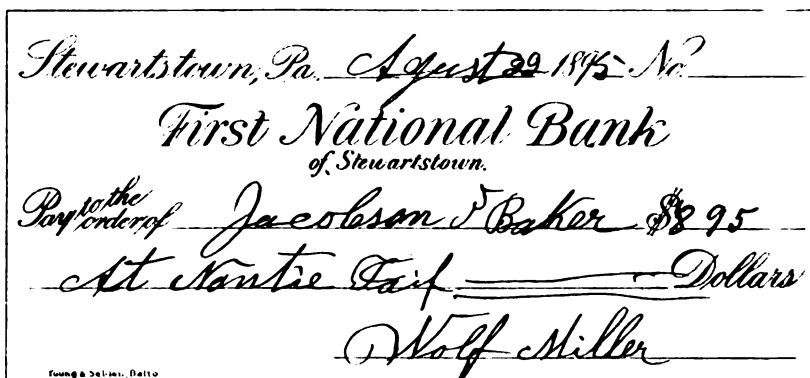 Stewartstown, Pa. Agust 29 1895 No.
First National Bank
of Stewartstown.
Pay to the order of Jacobson & Baker $8 95
At Nontie Faif Dollars
Wolf Miller